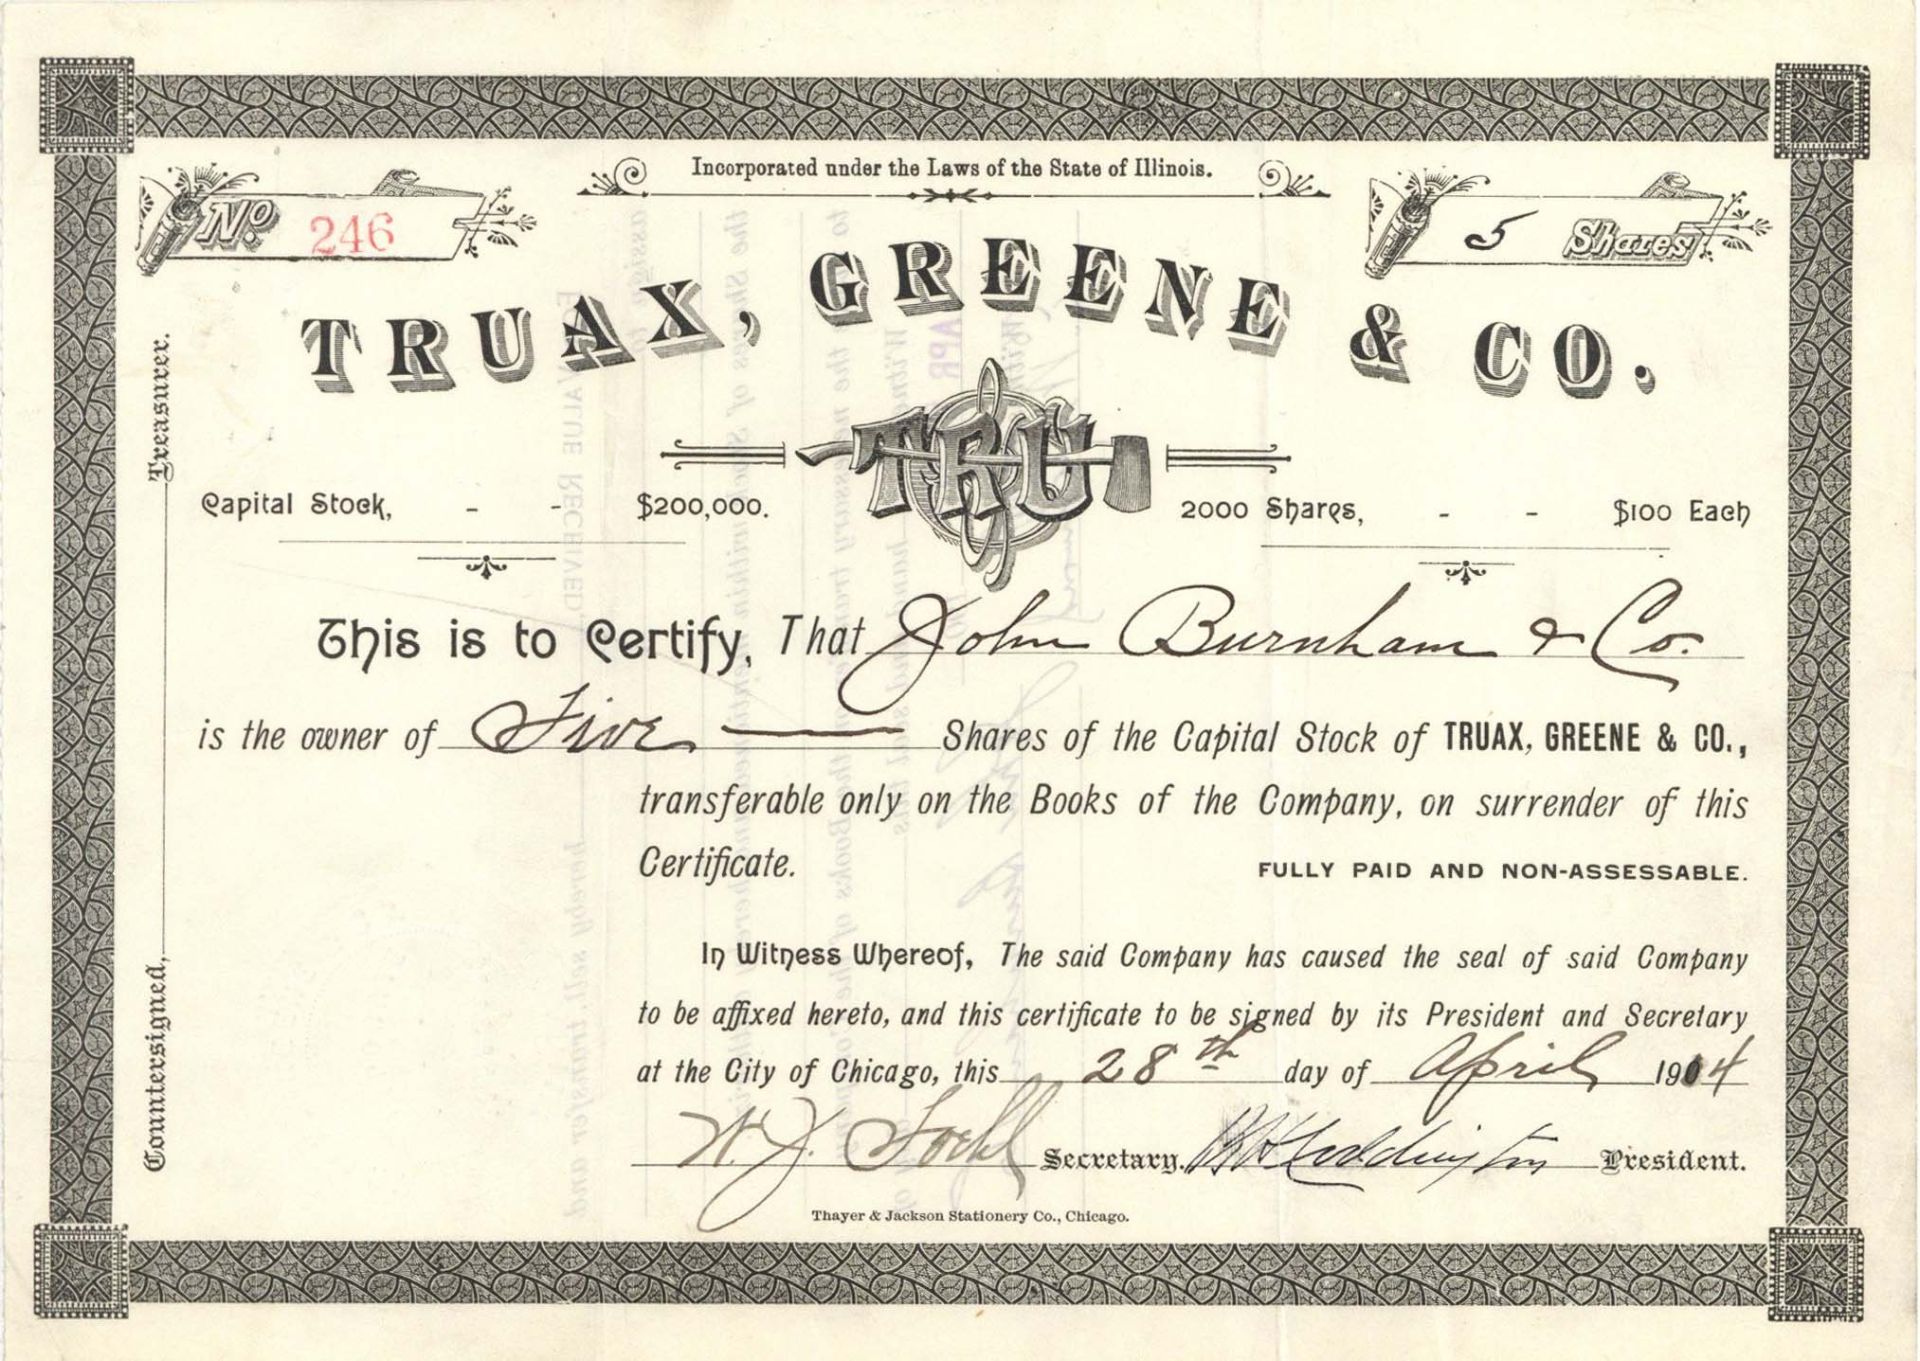 Incorporated under the Laws of the State of Illinois.
No. 246
5 Shares
TRUAX, GREENE & CO.
TRU
Capital Stock, - - $200,000.
2000 Shares, - - $100 Each
This is to Certify, That John Burnham & Co.
is the owner of Five Shares of the Capital Stock of TRUAX, GREENE & CO.,
transferable only on the Books of the Company, on surrender of this
Certificate. FULLY PAID AND NON-ASSESSABLE.
In Witness Whereof, The said Company has caused the seal of said Company
to be affixed hereto, and this certificate to be signed by its President and Secretary
at the City of Chicago, this 28th day of April 1904
Secretary. President.
Thayer & Jackson Stationery Co., Chicago.
Countersigned, Treasurer.